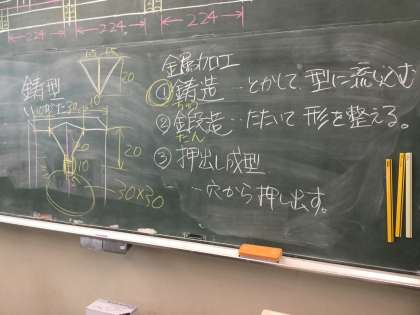 224 224 224
15 15
20
10
鋳型
20
10
30×30
金属加工
①鋳造…とかして、型に流し込む
ちゅう
②鍛造…たたいて形を整える。
たん
③押出し成型
…穴から押し出す。